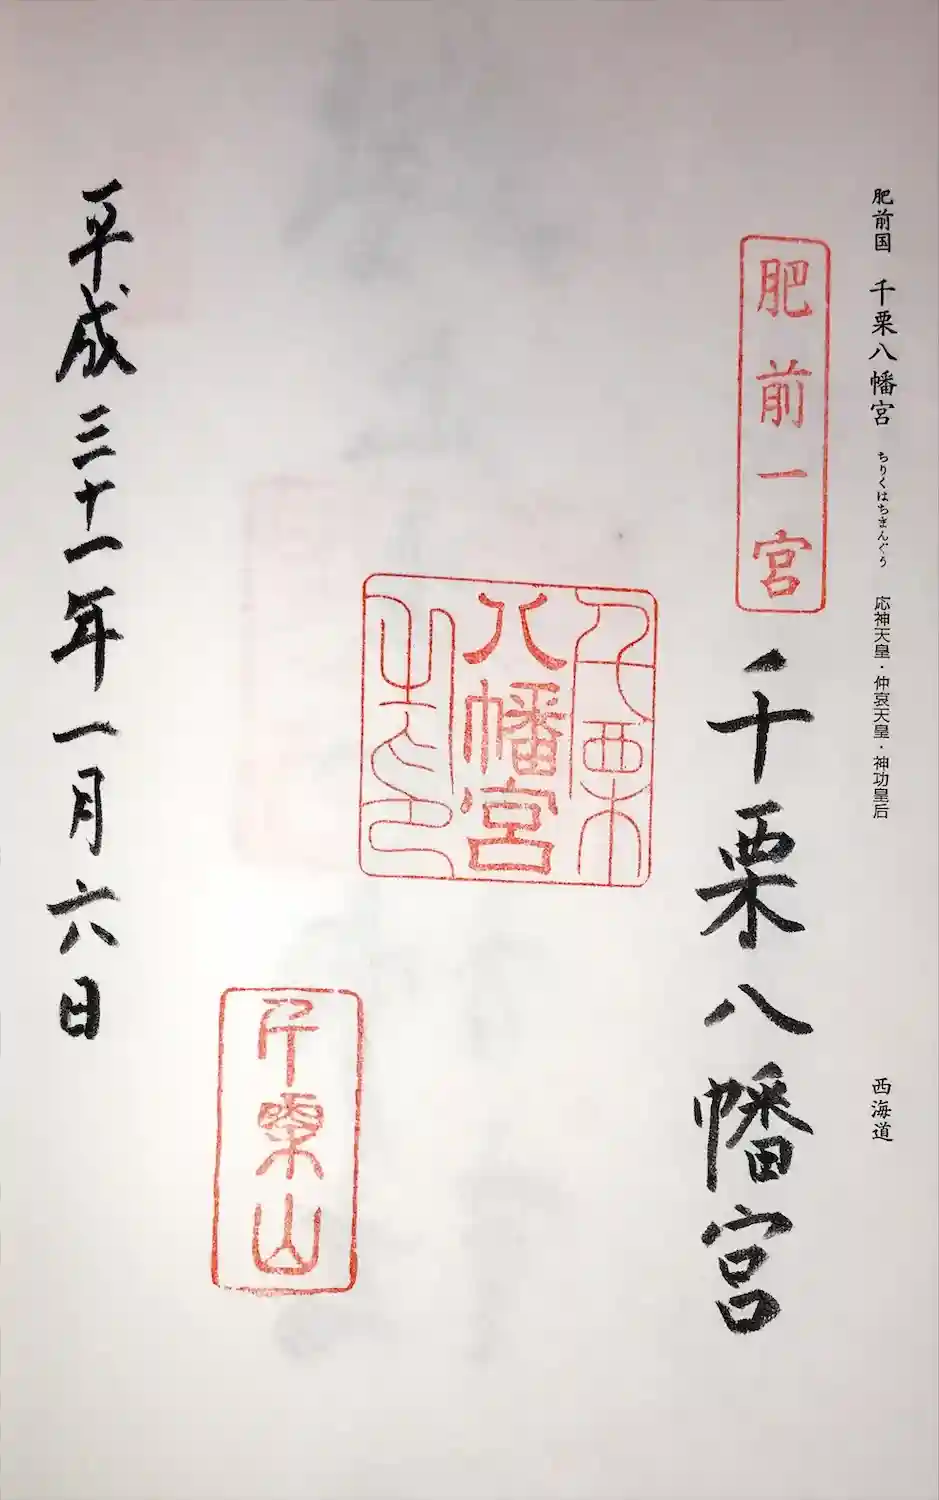 肥前国 千栗八幡宮 ちりくはちまんぐう 応神天皇・仲哀天皇・神功皇后 西海道
肥前一宮
千栗八幡宮
千栗
八幡宮
之印
千栗山
平成三十一年一月六日